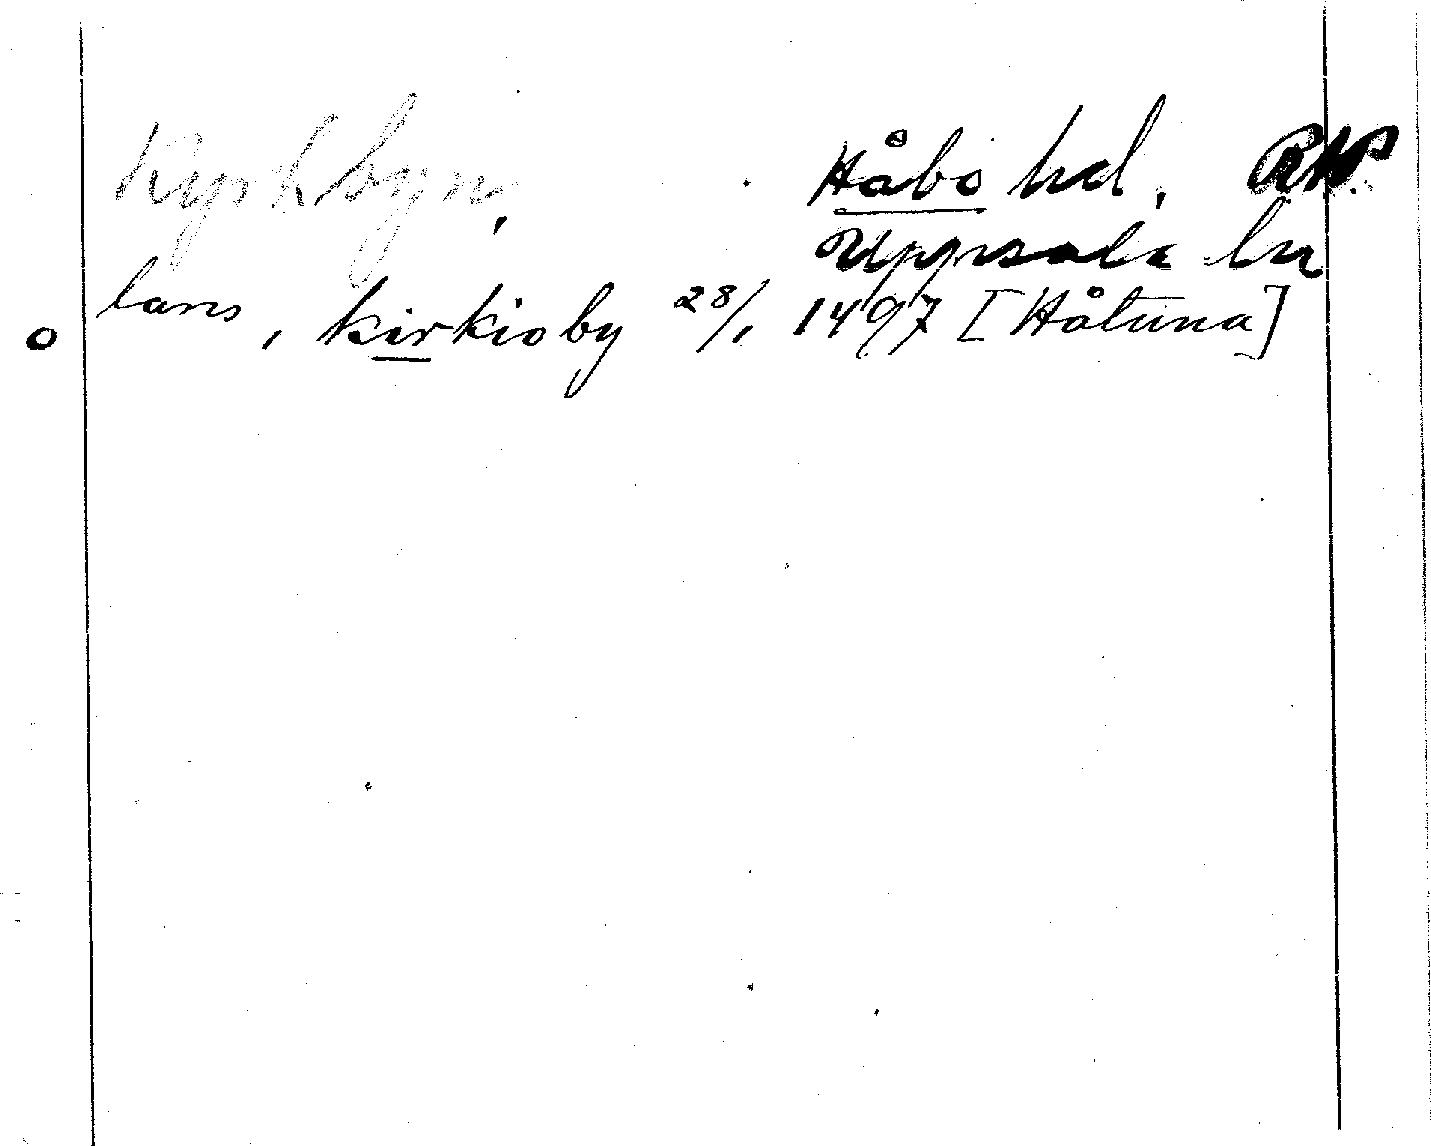 Kyrkbyn, Håbo hd, RAP.
Uppsala ln
lans, kirkioby 28/1 1497 [Håtuna]